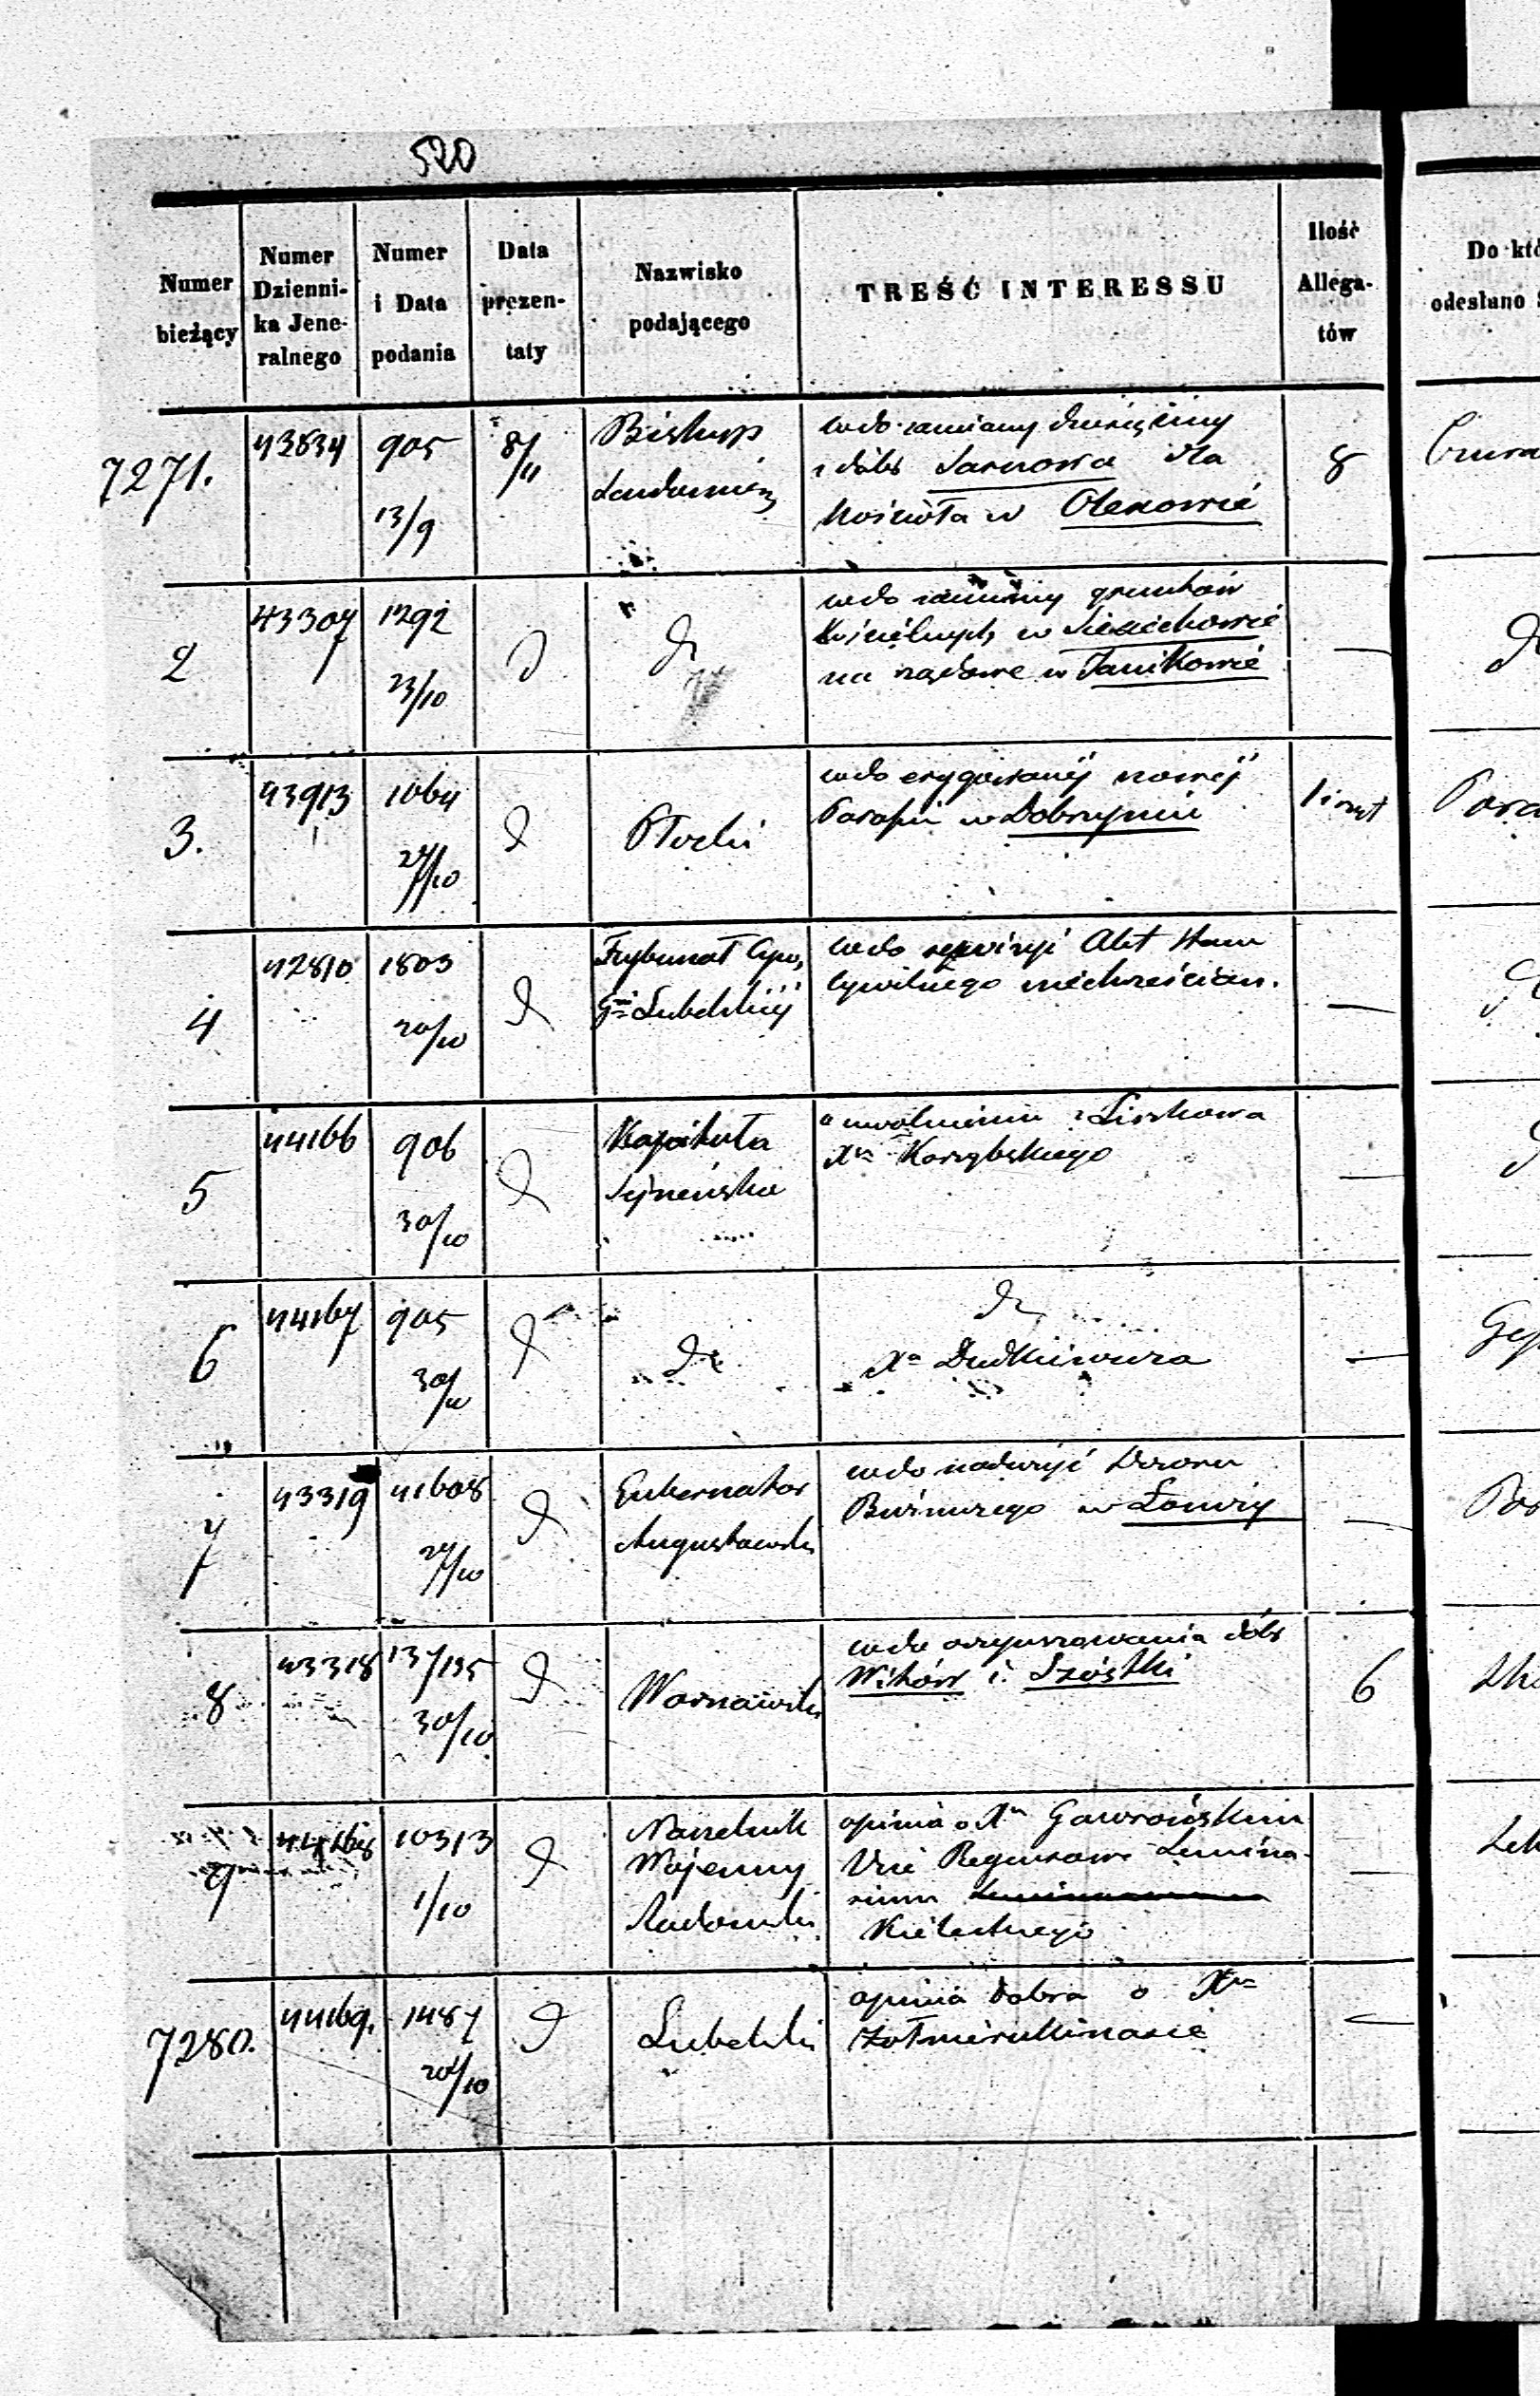 520
Numer bieżący
Numer Dzienni-ka Jene-ralnego
Numer i Data podania
Data prezen-taty
Nazwisko podającego
TREŚĆ INTERESSU
Ilość Allega-tów
Do któ
odesłano
7271.
43834
905
13/9
8/11
Biskup
Sandomier
wdo zamiany dziesięciny
z dóbr Sarnowa dla
Kościoła w
8
2
43307
1292
23/10
d
do
wdo zamiany gruntów
Kościelnych w Sieciechowie
na rządowe w Janikowie
—
do
3.
43913
1064
24/10
d
Płocki
wdo erygowanéj nowéj
Parafii w Dobrzyniu
4
42810
1803
20/10
d
Trybunał Cyw.
Gnii Lubelskiéj
wdo rewizyi Akt Stanu
cywilnego niechrześcian.
—
5
44166
906
30/10
d
Kapituła
Sejneńska
o uwolnieniu z Liszkowa
Xa
—
6
44167
905
30/10
d
do
do
Xa Dudkiewicza
—
7
43319
41608
24/10
d
Gubernator
Augustowski
wdo nadużyć Dozoru
Bużniczego w Łomży
—
8
43318
30/10
d
Warszawski
dóbr
Witów i Szóstki
6
9
10313
1/10
d
Naczelnik
Wojenny
Radomski
opinia o Xu
Vice Regensowi Semina-
rium
Kieleckiego
—
7280.
44169.
1487
20/10
d
Lubelski
opinia dobra o Xu
—